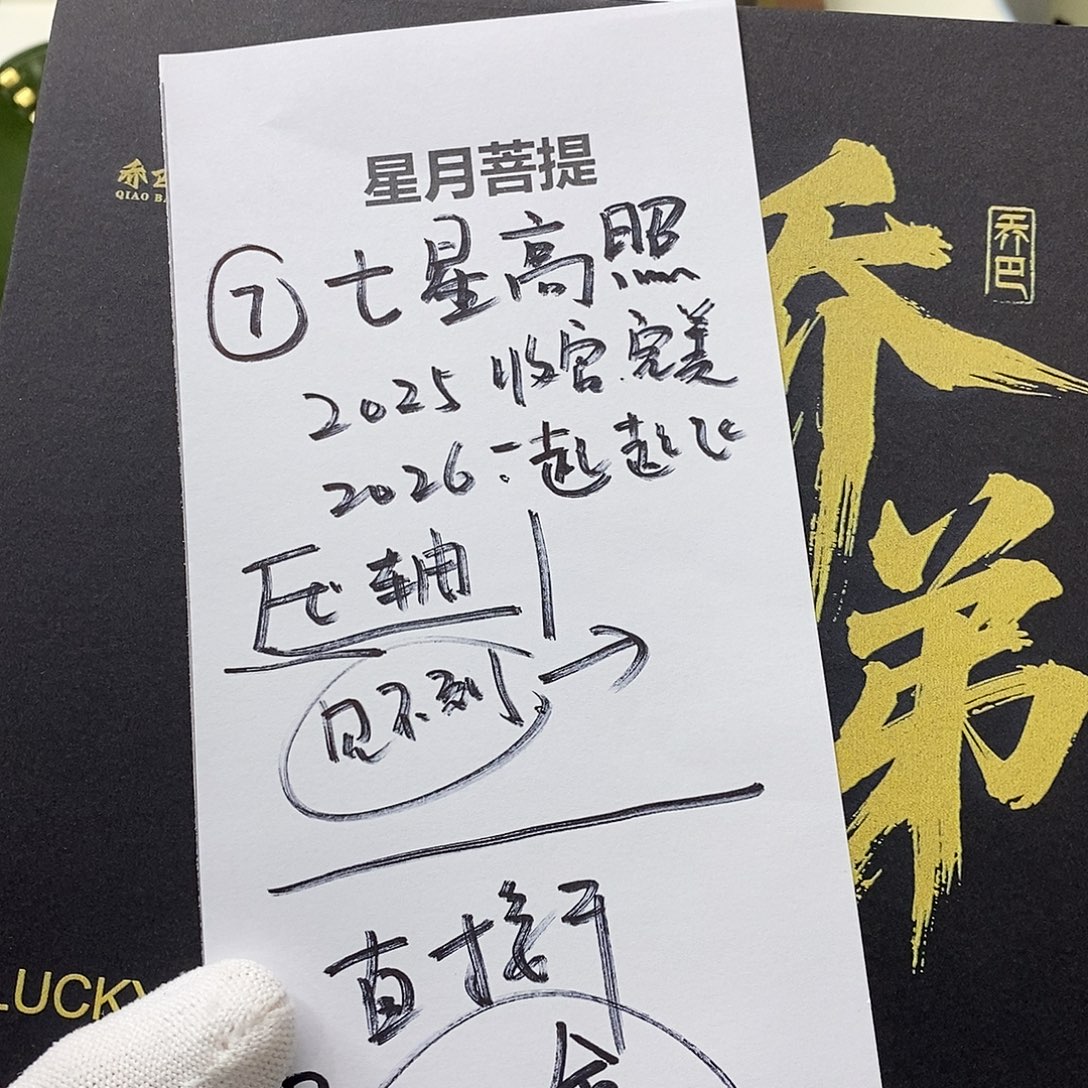 星月菩提
⑦ 七星高照
2025 收官完美
2026 一起起飞
压轴
见不到
直接干
乔
QIAO BA
乔弟
乔巴
LUCKY